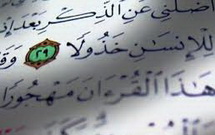 أَضَلَّنِي عَنِ ٱلذِّكْرِ بَعْدَ إِذْ
لِلْإِنسَٰنِ خَذُولًا ٢٩
هَٰذَا ٱلْقُرْءَانَ مَهْجُورًا